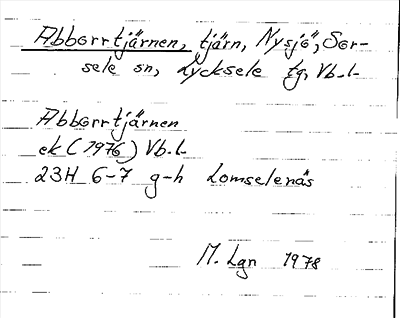 Abborrtjärnen, tjärn, Nysjö, Sor-
sele sn, Lycksele tg, Vb.l.
Abborrtjärnen
ek (1976) Vb.l.
23H 6-7 g-h Lomselenäs
M. Lgn 1978